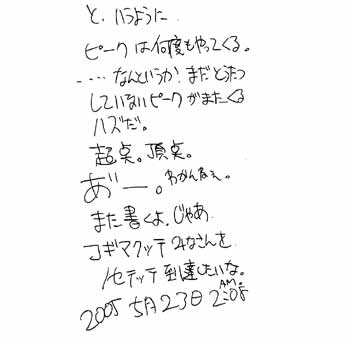 と、いうように
ピークは何度もやってくる。
・・・・なんというか？まだとうたつ
していないピークがまたくる
ハズだ。
超点。頂点。
あ゛ー。わかんねぇ。
また書くよ。じゃあ
コギマクッテみなさんを
ノセテッテ到達したいな。
2005 5月23日 2:08 AM